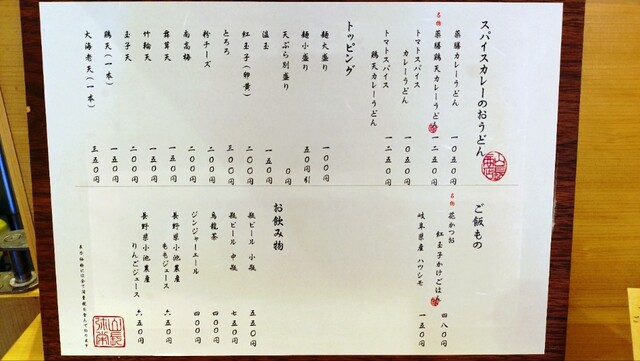 スパイスカレーのおうどん
薬膳カレーうどん 一〇五〇円
名物 薬膳鶏天カレーうどん 一二五〇円
トマトスパイス
カレーうどん 一〇五〇円
トマトスパイス
鶏天カレーうどん 一二五〇円
トッピング
麺大盛り 一〇〇円
麺小盛り 五〇円引
天ぷら別盛り 〇円
温玉 一五〇円
紅玉子(卵黄) 一〇〇円
とろろ 三〇〇円
粉チーズ 二〇〇円
南高梅 二〇〇円
舞茸天 一五〇円
竹輪天 一五〇円
玉子天 二〇〇円
鶏天(一本) 一五〇円
大海老天(一本) 三五〇円
ご飯もの
名物 花かつお
紅玉子かけごはん 四八〇円
岐阜県産 ハツシモ 一五〇円
お飲み物
瓶ビール 小瓶 五五〇円
瓶ビール 中瓶 七五〇円
烏龍茶 四〇〇円
ジンジャーエール 四〇〇円
長野県小池農産
ももジュース 六五〇円
長野県小池農産
りんごジュース 六五〇円